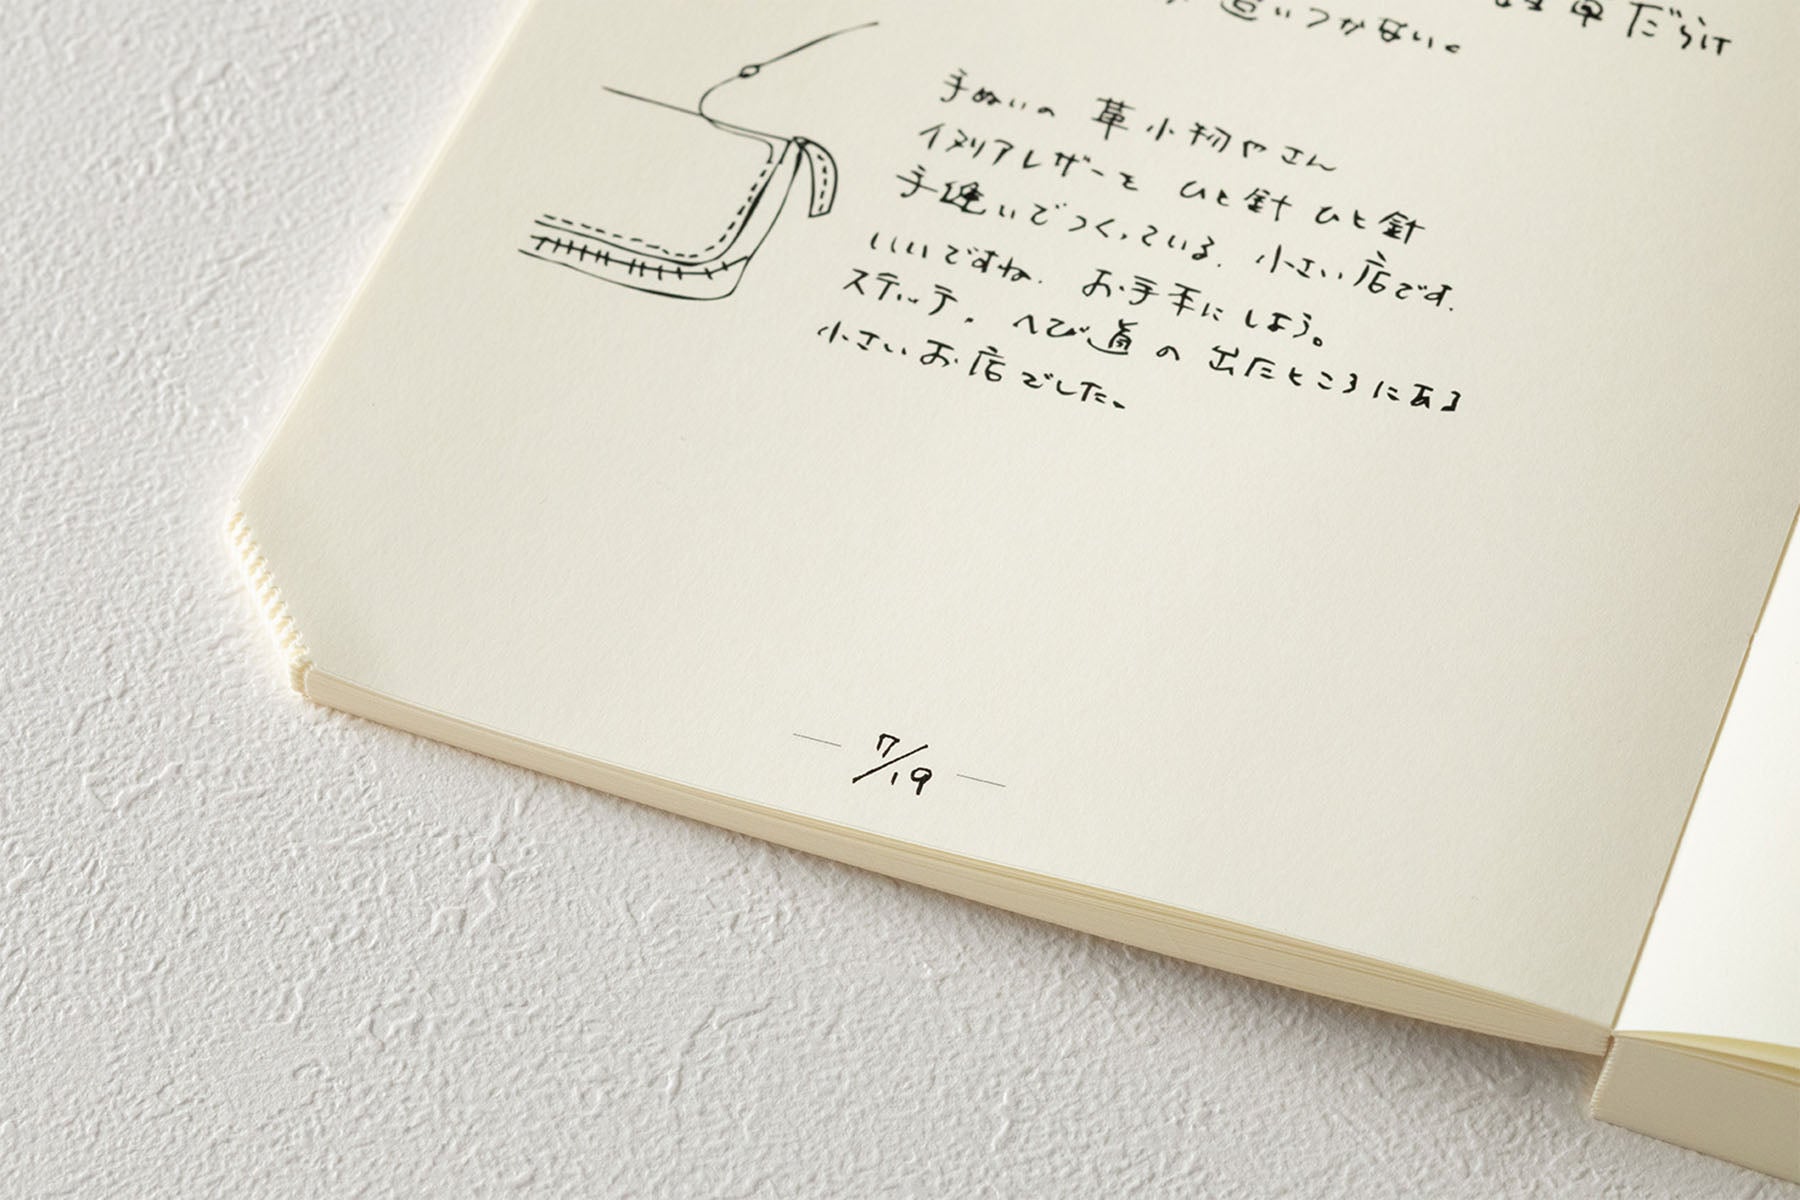 だらけ
追いつかない。
手ぬいの 革小物やさん
イタリアレザーを ひと針 ひと針
手縫いでつくっている. 小さい店です.
いいですね. お手本にしよう。
ステッチ. へび道の出たところにある
小さいお店でした.
7/19